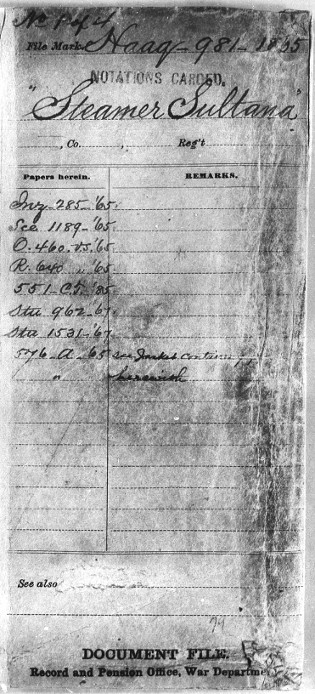 No 1 of 4
File Mark. Haag - 981 - 1865
NOTATIONS CARDED.
"Steamer Sultana"
, Co. , Reg't
Papers herein. REMARKS.
Inz 285 - '65.
See 1189 - '65.
O. 460. VS. '65.
R. 640 " '65.
551 - CT. '85.
Sta 962 - '67.
Sta 1531 - '67.
576 - A - '65 see Jacket
" herewith
See also
DOCUMENT FILE,
Record and Pension Office, War Department